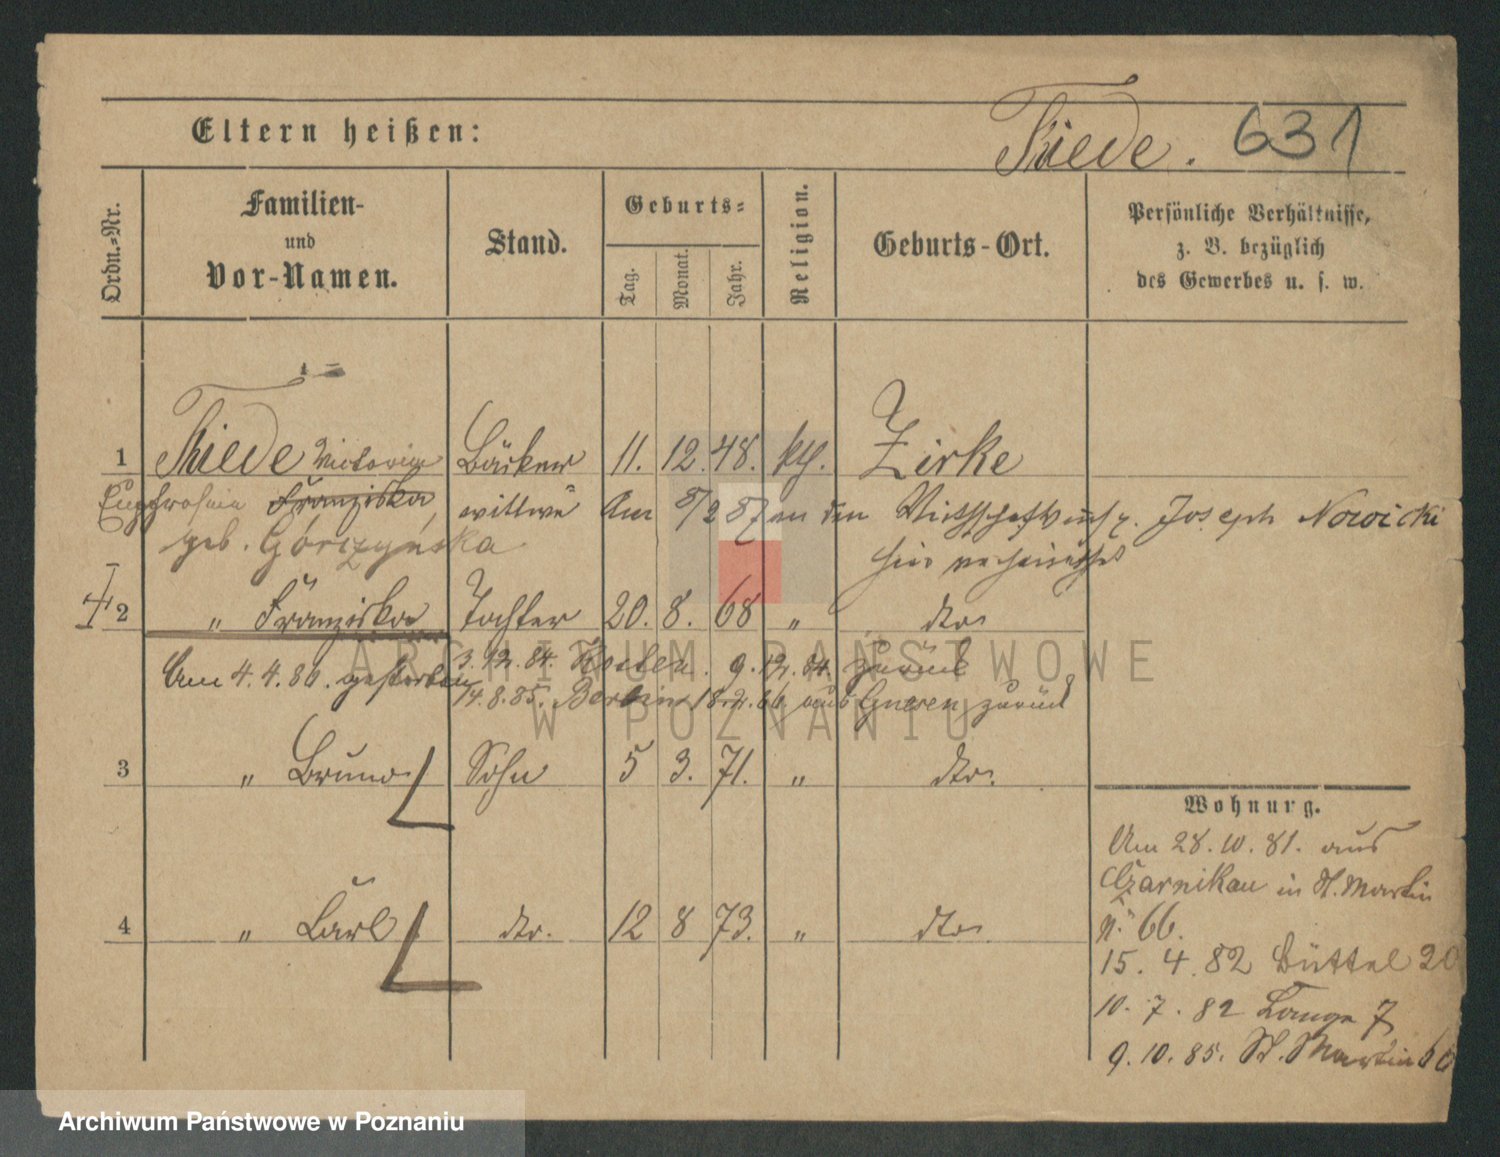 Eltern heißen:
Thiede. 631
Ordn.-Nr.
Familien-
und
Vor-Namen.
Stand.
Geburts-
Tag.
Monat.
Jahr.
Religion.
Geburts-Ort.
Persönliche Verhältnisse,
z. B. bezüglich
des Gewerbes u. s. w.
1 Thiede Victoria Bäcker 11. 12. 48. kth. Zirke
Euphrosina Franziska, wittwe Am 8/2 87 an den Joseph Nowicki
geb. Górczyńska hier verheirathet
2 " Franziska Tochter 20. 8. 68 " dto
Am 4. 4. 86. gestorben 3. 12. 84. 9. 12. 84. zurück
14. 8. 85. Berlin 18. 2. 86 aus Gnesen zurück
3 " Bruno Sohn 5 3. 71. " dto.
4 " Carl dto. 12 8 73. " dto
Wohnung.
Am 28. 10. 81. aus
Czarnikau in St. Martin
N: 66.
15. 4. 82 Büttel 20
10. 7. 82 Lange 7
9. 10. 85. St. Martin 60
ARCHIWUM PAŃSTWOWE
W POZNANIU
Archiwum Państwowe w Poznaniu